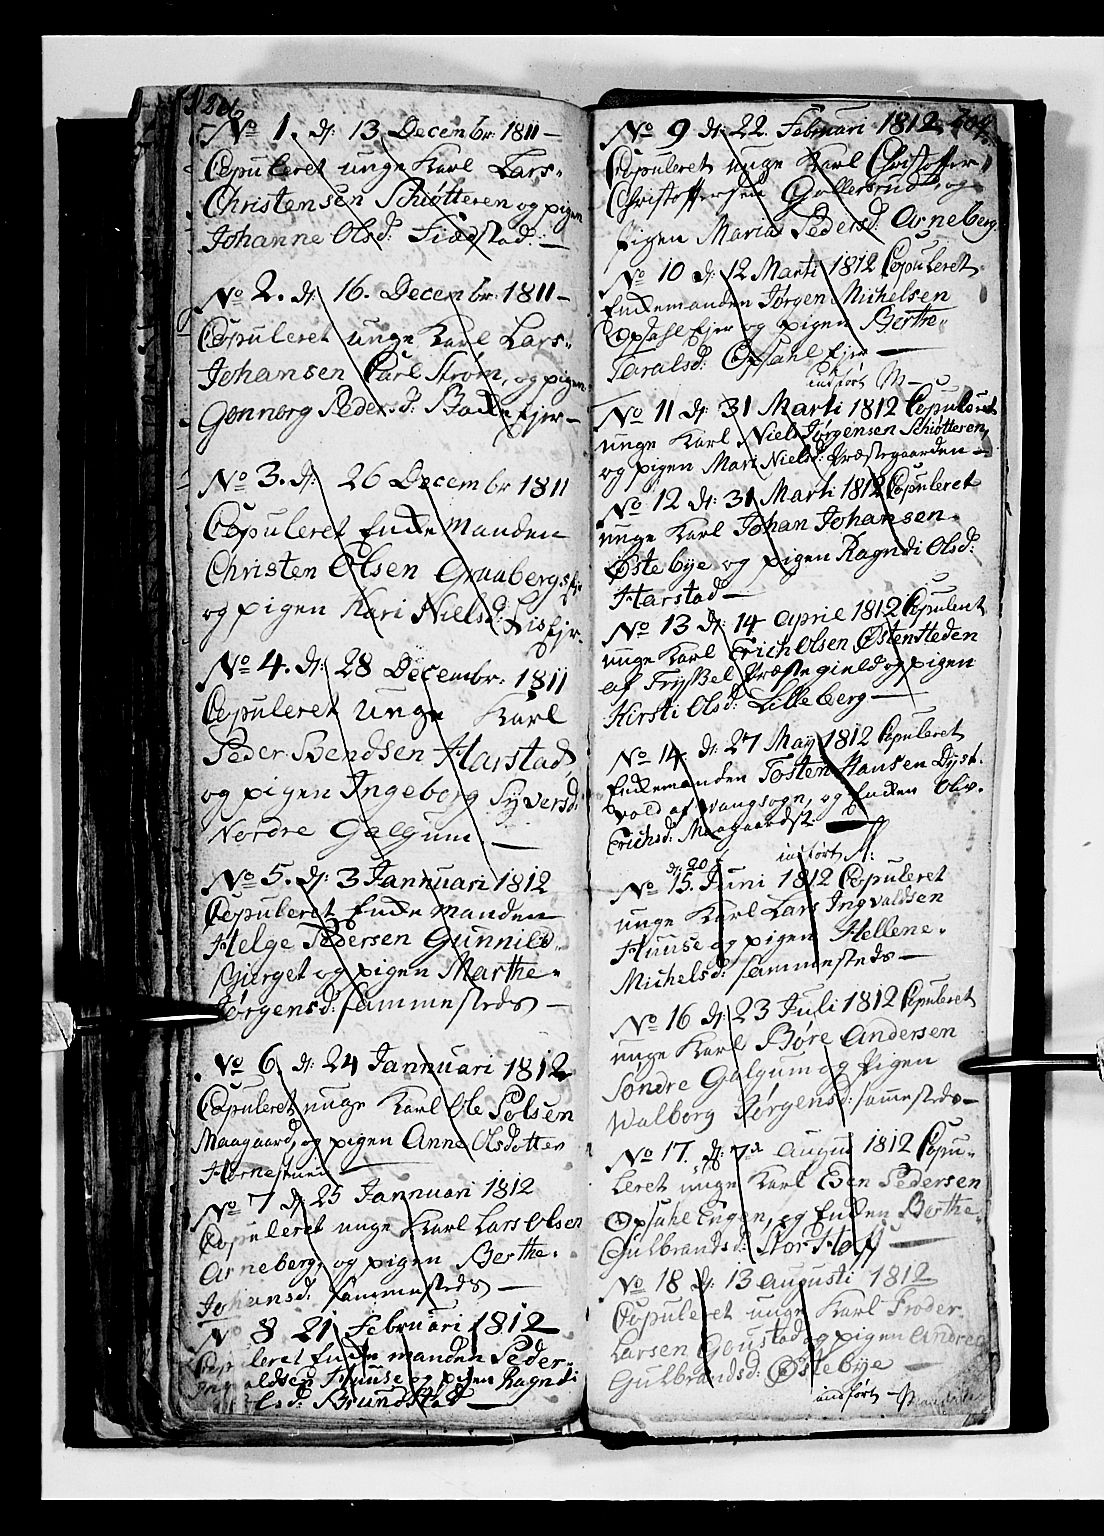 No 1. d: 13 Decembr 1811 —
Copuleret unge Karl Lars
Christensen Schiøtteren og pigen
Johanne Olsd:
No 2. d: 16. Decembr 1811 —
Copuleret unge Karl Lars
Johansen Carl Strøm, og pigen
Gonnorg Pedersd: Ejer —
No 3. d: 26 Decembr 1811
Copuleret Enke Manden
Christen Olsen Graabergs
og pigen Kari Nielsd: Ejr.
No 4. d: 28 Decembr: 1811
Copuleret unge Karl
Peder Bendsen Harstad
og pigen Ingeborg Syversd:
Nordre Galgum. —
No 5. d: 3 Jannuari 1812
Copuleret Enke manden
Helge Pedersen Gunnild
Bjerget og pigen Marthe
Jørgensd: sammesteds —
No 6. d: 24 Jannuari 1812
Copuleret unge Karl Ole Polsen
Maagaard, og pigen Anne Olsdotter
Hornestuen
No 7 d: 25 Jannuari 1812
Copuleret unge Karl Lars Olsen
Arneberg, og pigen Berthe
Johansd: sammesteds —
No 8 21 Februari 1812
Copuleret Enke manden Peder
Huuse og pigen Ragndi
Brundstad —
No 9 d: 22. Februari 1812
Copuleret unge Karl Christoffer
Christoffersen Gollersrud og
pigen Maria Pedersd: Arneberg
No 10 d: 12 Marti 1812 Copuleret
Enkemanden Jørgen Michelsen
Opsahl Ejer og pigen Berthe
Taralsd: Opsahl Ejer —
indført
No 11 d: 31 Marti 1812 Copuleret
unge Karl Niels Jørgensen Schiøtteren,
og pigen Mari Nielsd: Præstegaarden —
No 12 d: 31 Marti 1812 Copuleret
unge Karl Johan Johansen
Østebye og pigen Ragndi Olsd:
Harstad —
No 13 d: 14 April 1812 Copulent
unge Karl Erich Olsen Østen Heden
af Trysel Præstegield og pigen
Kirsti Olsd: Lilleberg —
No 14. d: 27 May 1812 Copuleret
Enkemanden Tosten Hansen Dyst
vold af Vangsogn, og Enken Oliv.
Erichsd: Maagaards
indført
d: 20
No 15. Juni 1812 Copuleret
unge Karl Lars Ingvaldsen
Huuse og pigen Hellene
Michelsd: sammesteds —
No 16 d: 23 Juli 1812 Copuleret
unge Karl Børe Andersen
Søndre Galgum og Pigen
Walborg Jørgensd: sammesteds —
No 17. d: 7 August 1812 Copu-
leret unge Karl Even Pedersen
Opsahl Engen, og Enken Berthe
Gulbrandsd: Stor Hoff —
No 18 d: 13 Augusti 1812
Copuleret unge Karl
Larsen og pigen Andrea
Gulbrandsd: Østebye —
indført